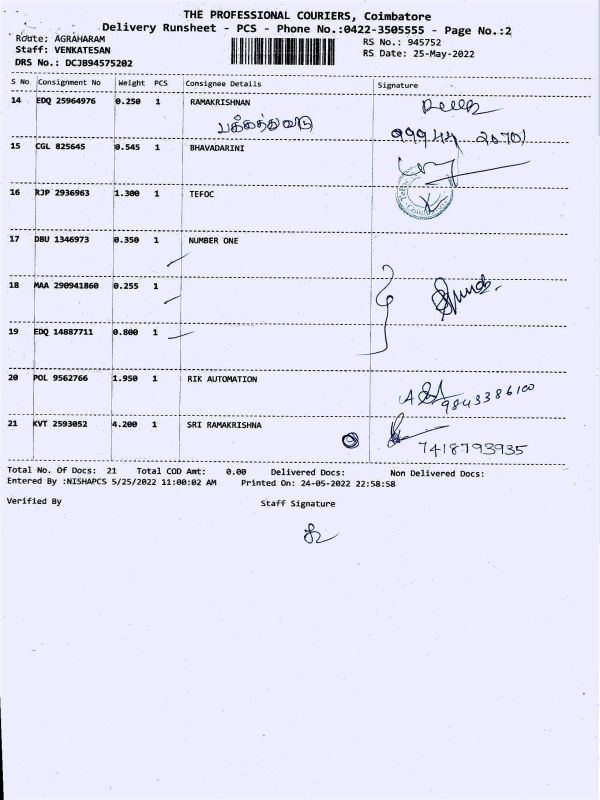 THE PROFESSIONAL COURIERS, Coimbatore
Delivery Runsheet - PCS - Phone No.:0422-3505555 - Page No.:2
Route: AGRAHARAM
RS No.: 945752
Staff: VENKATESAN
RS Date: 25-May-2022
DRS No.: DCJB94575202
S No Consignment No Weight PCS Consignee Details Signature
14 EDQ 25964976 0.250 1 RAMAKRISHNAN
பக்கத்து வீடு
15 CGL 825645 0.545 1 BHAVADARINI
16 RJP 2936963 1.300 1 TEFOC
17 DBU 1346973 0.350 1 NUMBER ONE
18 MAA 290941860 0.255 1
19 EDQ 14887711 0.800 1
20 POL 9562766 1.950 1 RIK AUTOMATION
9843386100
21 KVT 2593052 4.200 1 SRI RAMAKRISHNA
7418793935
Total No. Of Docs: 21 Total COD Amt: 0.00 Delivered Docs: Non Delivered Docs:
Entered By :NISHAPCS 5/25/2022 11:00:02 AM Printed On: 24-05-2022 22:58:58
Verified By Staff Signature